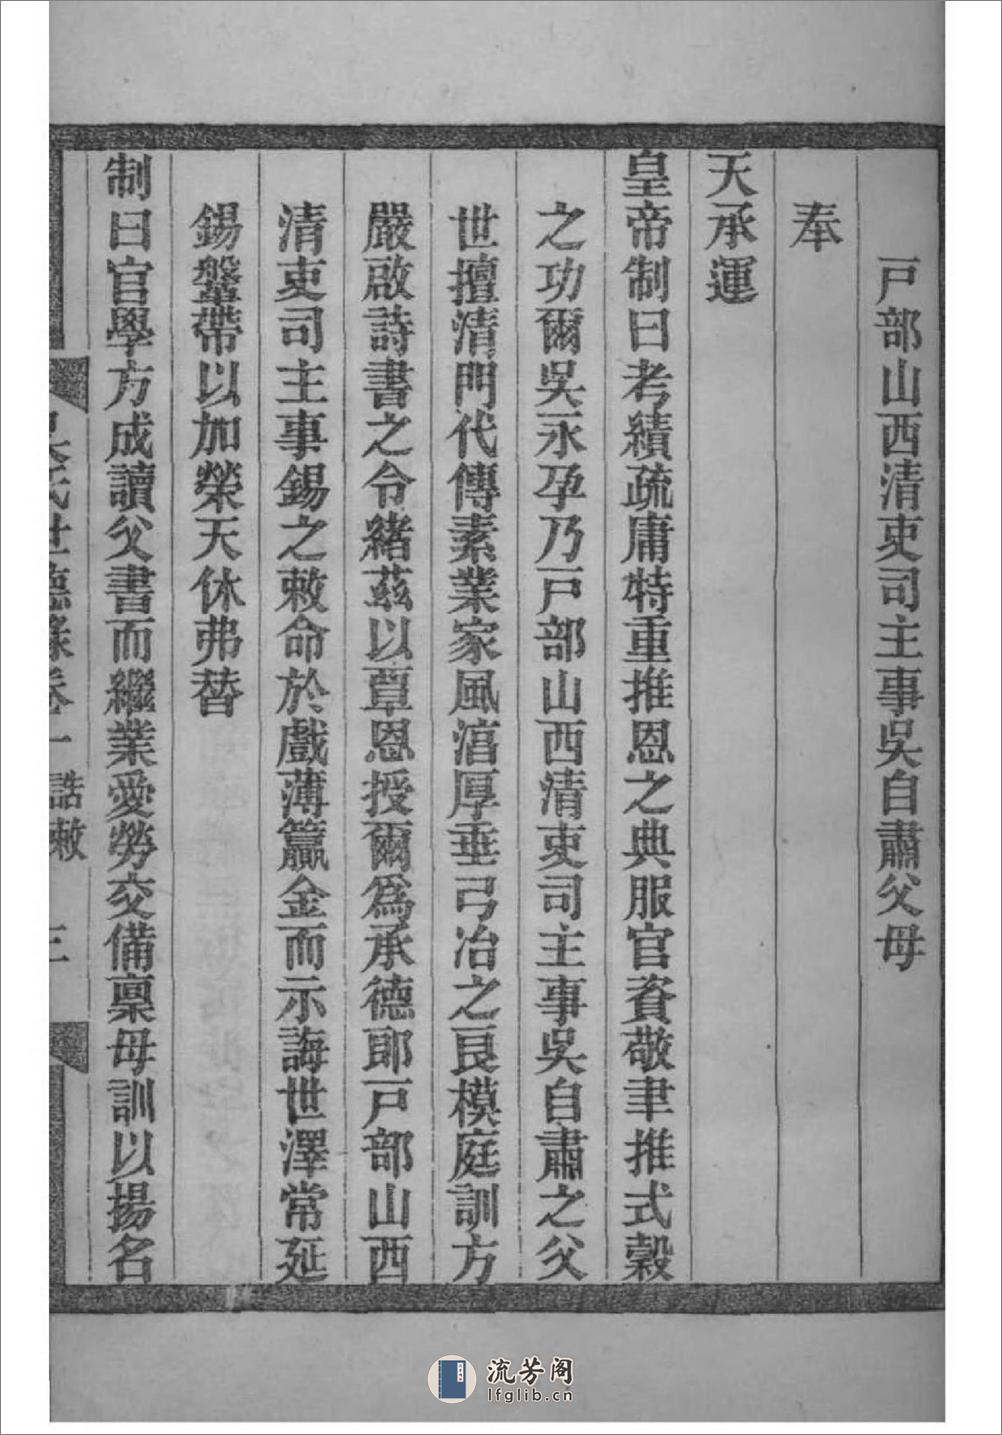 戸部山西清吏司主事吳自肅父母
奉
天承運
皇帝制曰考績疏庸特重推恩之典服官資敬聿推式穀
之功爾吳永孕乃戸部山西清吏司主事吳自肅之父
世擅清門代傳素業家風渲厚垂弓冶之良模庭訓方
嚴啟詩書之令緒茲以覃恩授爾爲承德郎戸部山西
清吏司主事錫之敕命於戲薄籯金而示誨世澤常延
錫鞶帶以加榮天休弗替
制曰官學方成讀父書而繼業愛勞交備稟母訓以揚名
氏世德錄卷一 誥敕 三
流芳阁
lfglib.cn